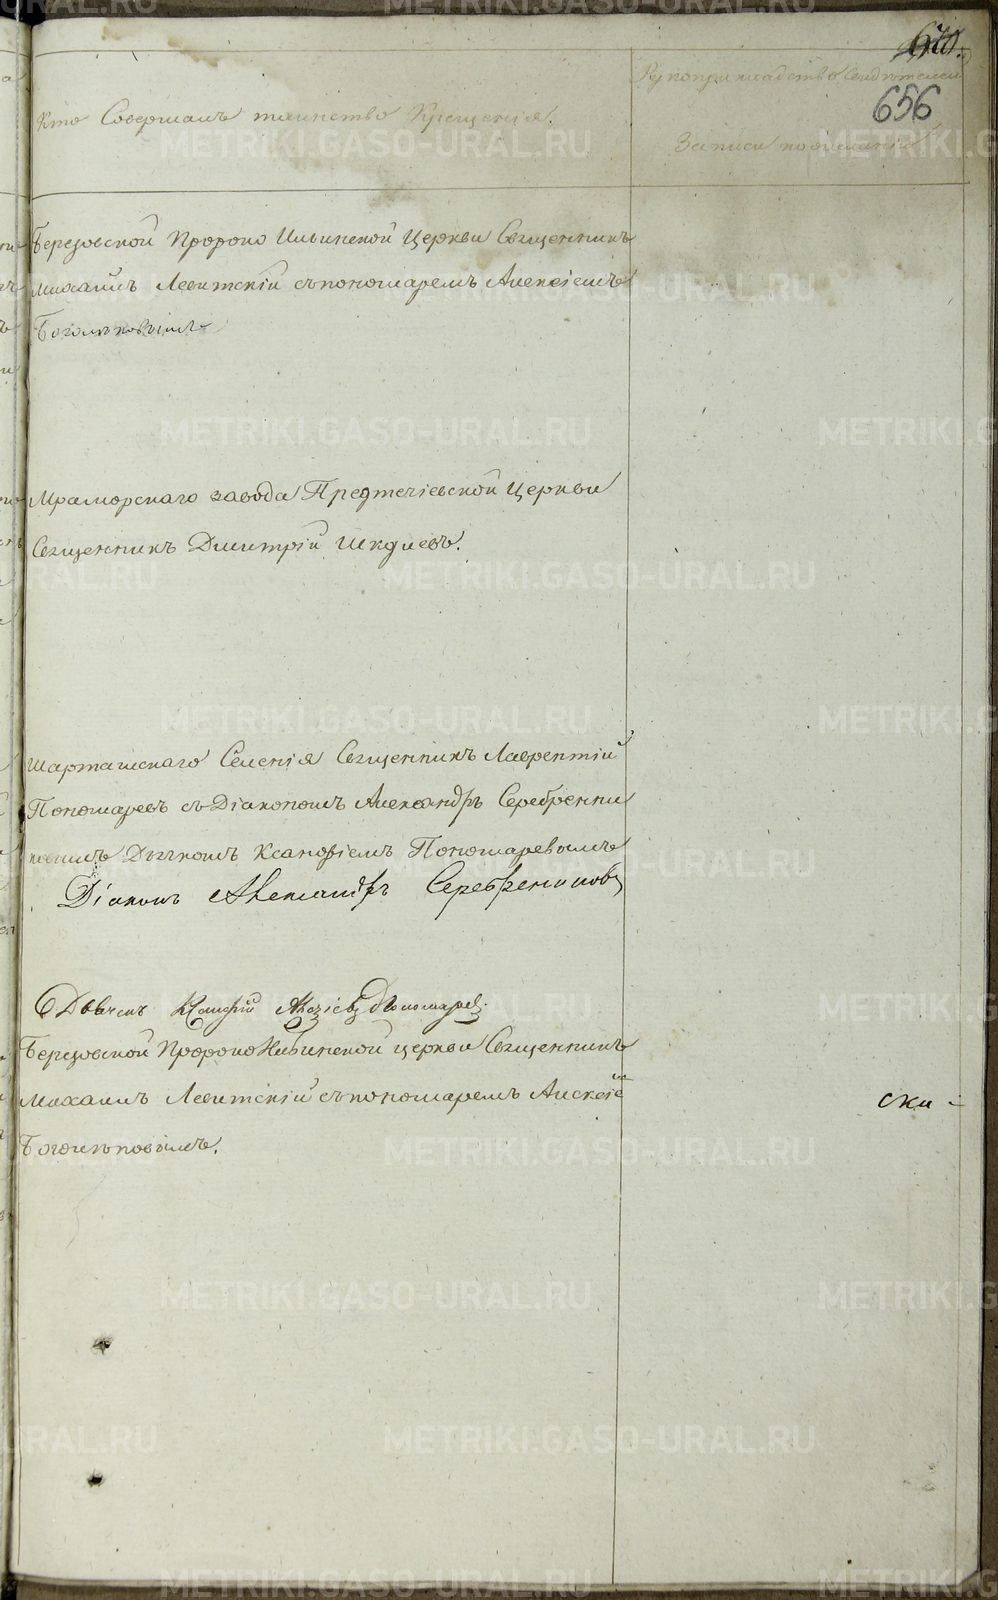 656
Кто Совершалъ таинство Крещенія.
Рукоприкладство Свидѣтелей
Записи по желанію
Березовской Пророко Ильинской Церкви Священникъ
Михаилъ Левитскій съ пономаремъ Алексіемъ
Боголѣповымъ
Мраморскаго завода Предтечіевской Церкви
Священникъ Димитрій Шкдиевъ.
Шарташскаго Селенія Священникъ Лаврентій
Пономаревъ съ Діакономъ Александръ Серебренни
ковымъ Дьячкомъ Ксанофіемъ Пономаревымъ
Діаконъ Александръ Серебренниковъ
Дьячекъ Пономарев
Березовской Пророко Ильинской церкви Священникъ
Михаилъ Левитскій съ пономаремъ Алексіе
Боголѣповымъ.
ски -
METRIKI.GASO-URAL.RU